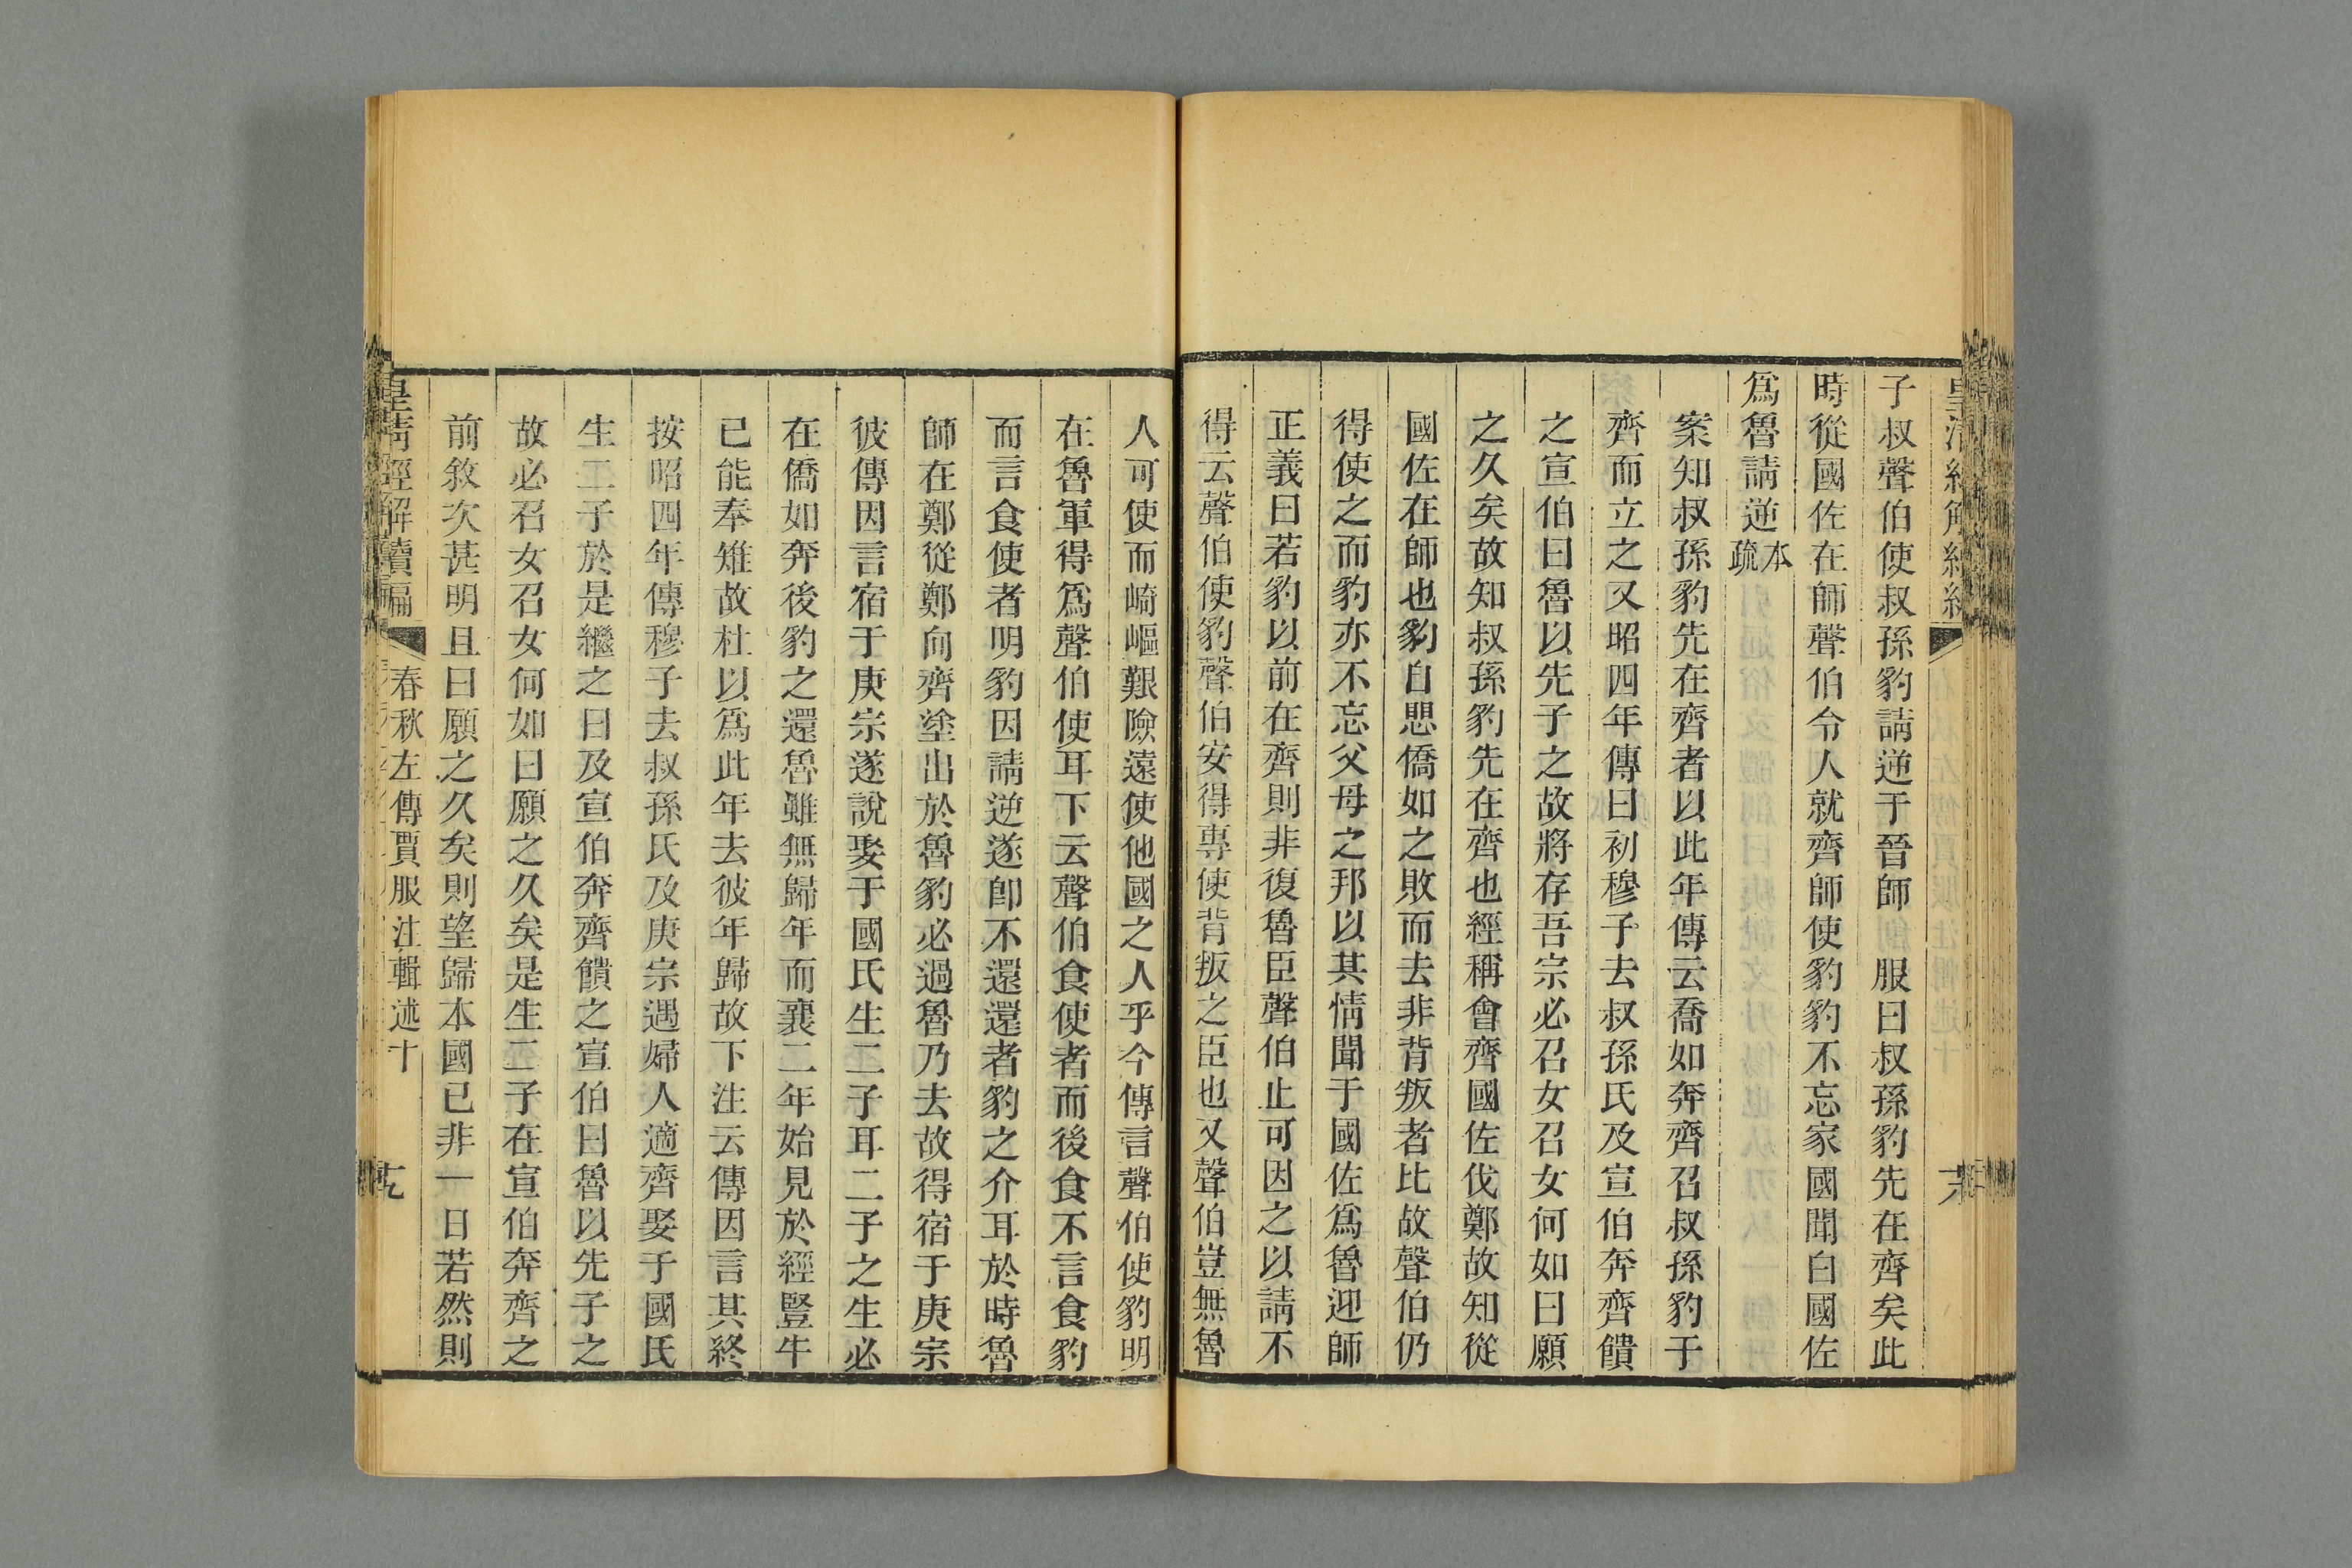 子叔聲伯使叔孫豹請逆于晉師　服曰叔孫豹先在齊矣此
時從國佐在師聲伯令人就齊師使豹豹不忘家國聞白國佐
爲魯請逆本疏
案知叔孫豹先在齊者以此年傳云喬如奔齊召叔孫豹于
齊而立之又昭四年傳曰初穆子去叔孫氏及宣伯奔齊饋
之宣伯曰魯以先子之故將存吾宗必召女召女何如曰願
之久矣故知叔孫豹先在齊也經稱會齊國佐伐鄭故知從
國佐在師也豹自思僑如之敗而去非背叛者比故聲伯仍
得使之而豹亦不忘父母之邦以其情聞于國佐爲魯迎師
正義曰若豹以前在齊則非復魯臣聲伯止可因之以請不
得云聲伯使豹聲伯安得專使背叛之臣也又聲伯豈無魯
人可使而崎嶇艱險遠使他國之人乎今傳言聲伯使豹明
在魯軍得爲聲伯使耳下云聲伯食使者而後食不言食豹
而言食使者明豹因請逆遂卽不還還者豹之介耳於時魯
師在鄭從鄭向齊塗出於魯豹必過魯乃去故得宿于庚宗
彼傳因言宿于庚宗遂說娶于國氏生二子耳二子之生必
在僑如奔後豹之還魯雖無歸年而襄二年始見於經豎牛
已能奉雉故杜以爲此年去彼年歸故下注云傳因言其終
按昭四年傳穆子去叔孫氏及庚宗遇婦人適齊娶于國氏
生二子於是繼之曰及宣伯奔齊饋之宣伯曰魯以先子之
故必召女召女何如曰願之久矣是生二子在宣伯奔齊之
前敘次甚明且曰願之久矣則望歸本國已非一日若然則
皇清經解續編　春秋左傳賈服注輯述十